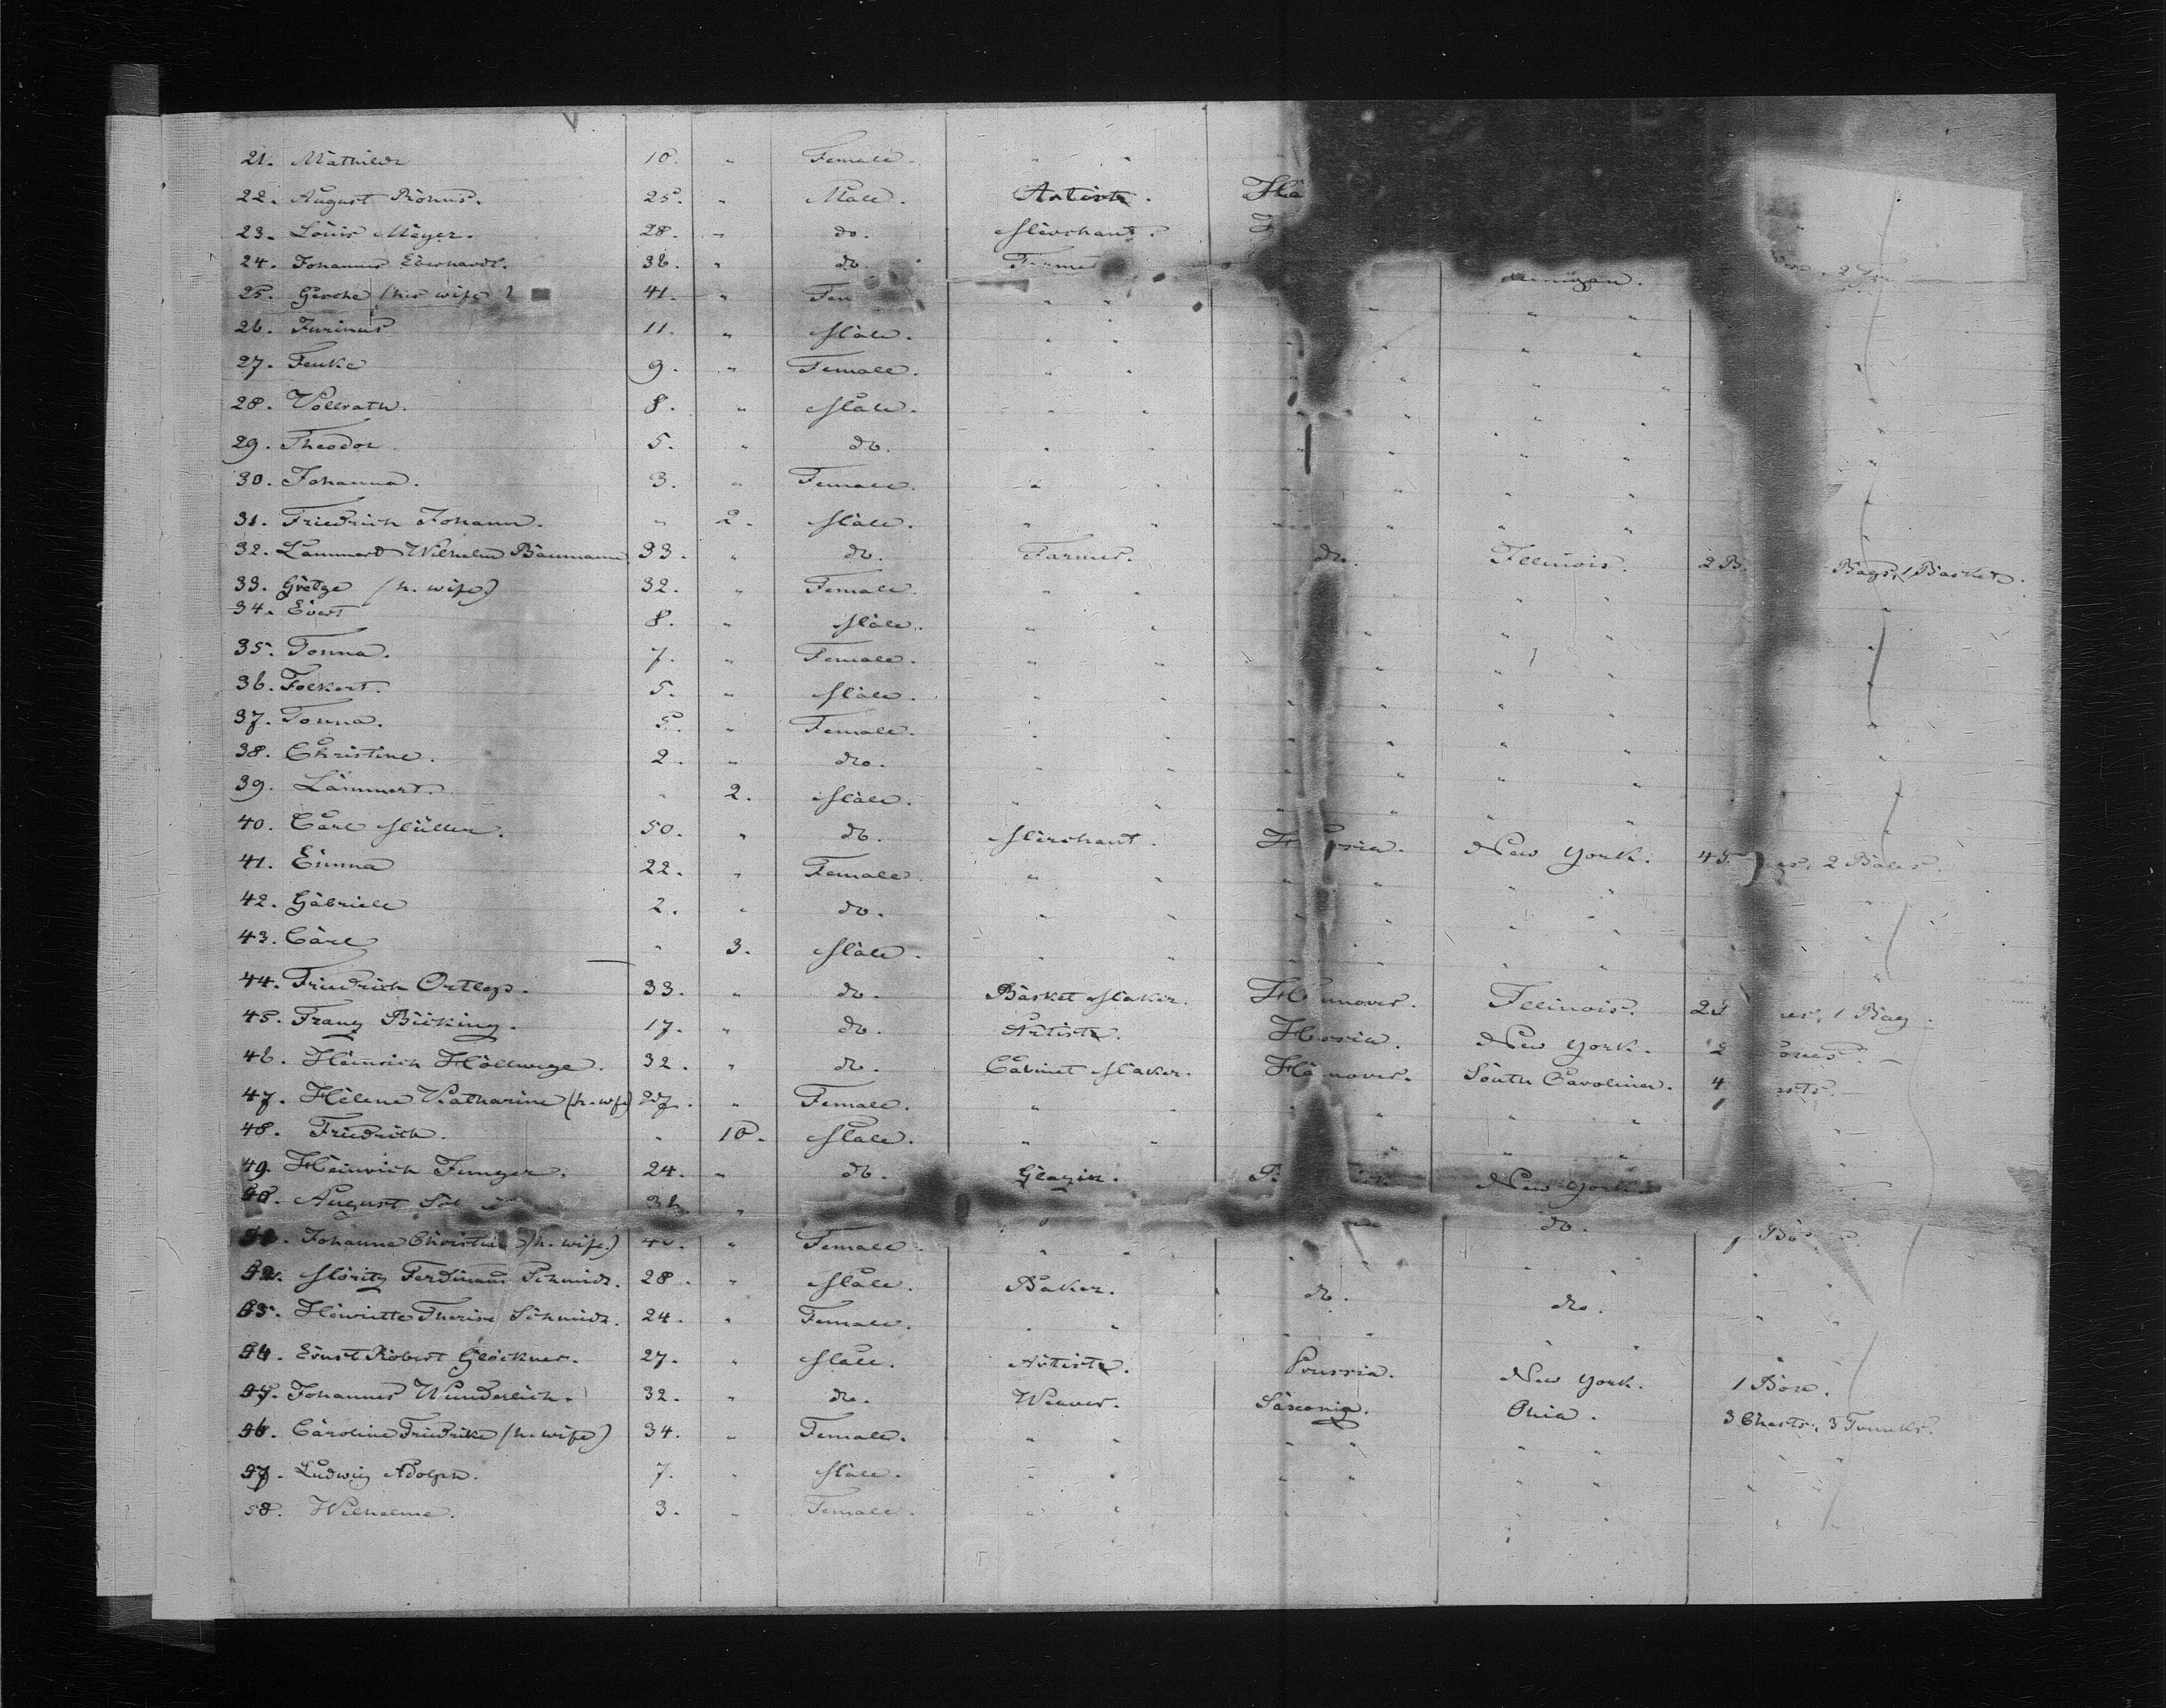 21. Mathilde 10. " Female. " "
22. August Röhnis. 25. " Male. Artist. Ha
23. Louis Meyer. 28. " do. Merchant.
24. Johannes Eberhardt. 36. " do. Farmer
25. Gesche (his wife) 41. " Fem " " " "
26. Jurinus 11. " Male. " " " "
27. Fenke 9. " Female. " " " "
28. Vollrath. 8. " Male. " " " "
29. Theodor. 5. " do. " " " "
30. Johanna. 3. " Female. " " " "
31. Friedrich Johann. " 2. Male. " " " "
32. Lammert Wilhelm Baumann 33. " do. Farmer. do. Illinois. 2 B. Bags, 1 Basket.
33. Gretge (h. wife) 32. " Female. " " " "
34. Evert 8. " Male. " " " "
35. Tonna. 7. " Female. " " " "
36. Folkert. 5. " Male. " " " "
37. Tonna. 5. " Female. " " " "
38. Christine. 2. " do. " " " "
39. Lammert. " 2. Male. " " " "
40. Carl Müller. 50. " do. Merchant. New York. 4 2 Bales.
41. Emma 22. " Female. " " " "
42. Gabriele 2. " do. " " " "
43. Carl " 3. Male. " " " "
44. Friedrich Ortlep. 33. " do. Basket Maker. Hannover. Illinois. 2 1 Bag.
45. Franz Bücking. 17. " do. Artist. Hessia. New York. 2
46. Heinrich Höllwege. 32. " do. Cabinet Maker. Hannover. South Carolina. 4 ests.
47. Helene Katharine (h. wife) 27. " Female. " " " "
48. Friedrich. " 10. Male. " " " "
49. Heinrich Junger. 24. " do. Glazier. New York.
50. August 36. " do.
51. Johanna Christia (h. wife.) 40. " Female. " " " "
52. Moritz Ferdinand Schmidt. 28. " Male. Baker. do. do. "
53. Henriette Therese Schmidt. 24. " Female. " " " "
54. Ernst Robert Glöckner. 27. " Male. Artist. Prussia. New York. 1 Box.
55. Johannes Wunderlich. 32. " do. Weaver. Saxonia. Ohio. 3 Chests, 3 Trunks.
56. Caroline Friedrike (h. wife) 34. " Female. " " " "
57. Ludwig Adolph. 7. " Male. " " " "
58. Wilhelme. 3. " Female. " " " "